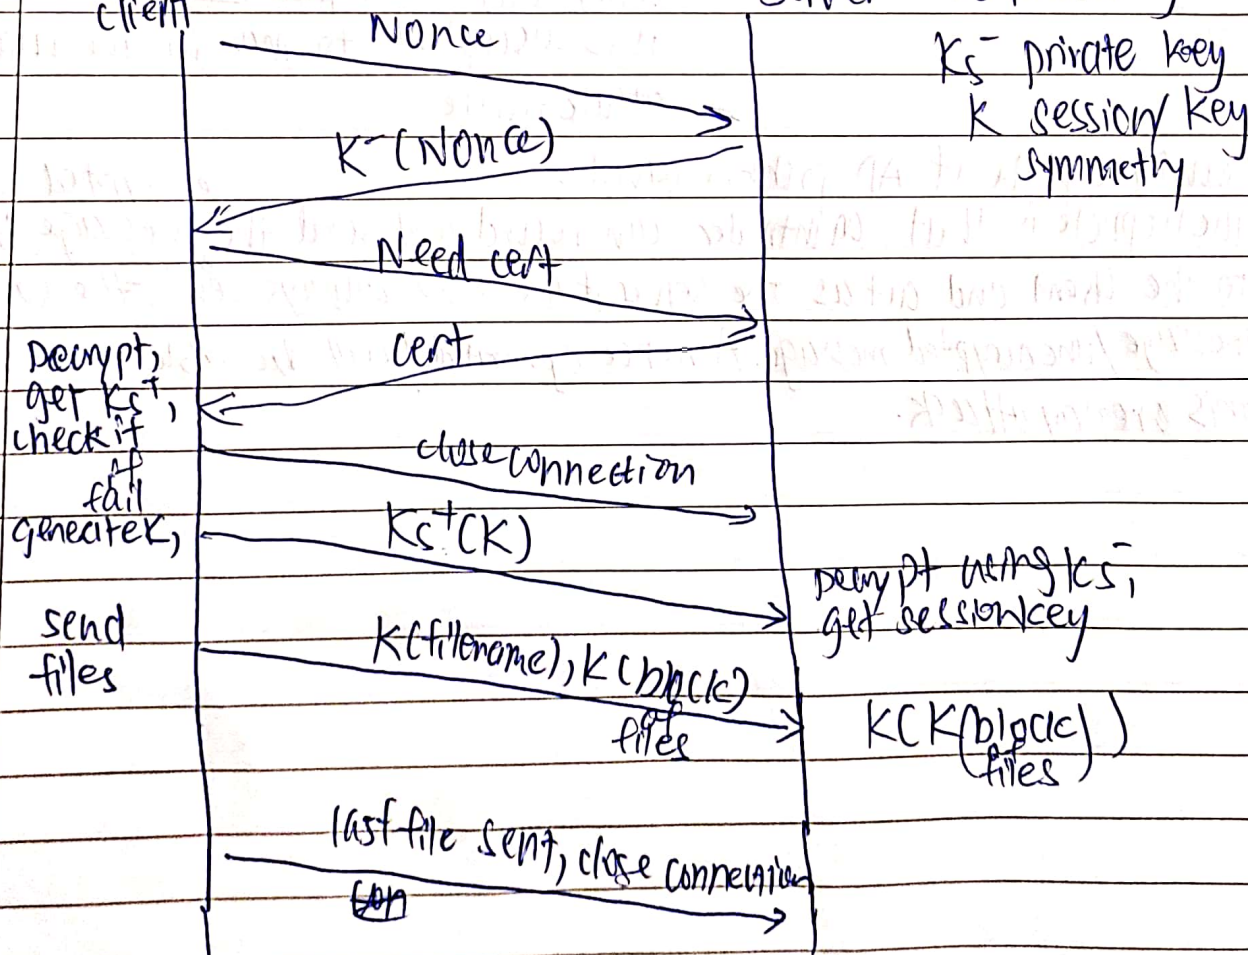 client
Nonce
Ks⁻ private key
K session key
symmetry
K⁻(Nonce)
Need cert
cert
Decrypt,
get Ks⁺,
check it
if
fail
close connection
generate K,
Ks⁺(K)
Decrypt using Ks⁻,
get session key
send
files
K(filename), K(block)
of
files
K(K(block))
of
files
last file sent, close connection